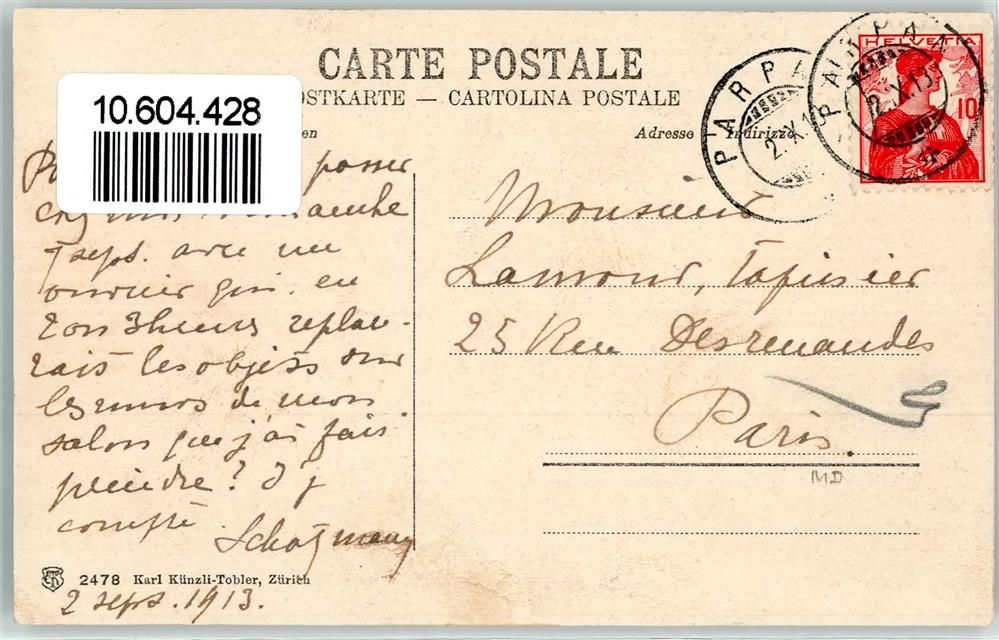 CARTE POSTALE
OSTKARTE — CARTOLINA POSTALE
10.604.428
en
Adresse Indirizzo
PARPAN
2.IX.13
PARPAN
2.IX.13
HELVETIA
10
passer
dimanche
7 sept. avec un
ouvrier qui. en
3 heures replac-
les objets sur
les murs de mon
salon que j'ai fait
peindre? J'y
compte
2478 Karl Künzli-Tobler, Zürich
2 sept. 1913.
Monsieur
Lamour, Tapissier
25 Rue Desrenaudes
Paris.
MD